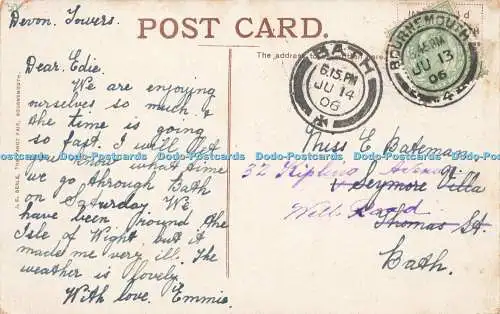 Devon. Towers.
POST CARD.
Dear Edie.
We are enjoying
ourselves so much &
the time is going
so fast. I will let
you know what time
we go through Bath
on Saturday. We
have been round the
Isle of Wight, but it
made me very ill. The
weather is lovely.
With love. Emmie.
The address
BATH
6.15 PM
JU 14
06
BOURNEMOUTH
JU 13
06
4
Miss E Bateman
32 Kipling Avenue
Seymore Villa
Well Road
Thomas St.
Bath.
Docs-postcards.com Docs-postcards.com Docs-postcards.com Docs-postcards.com